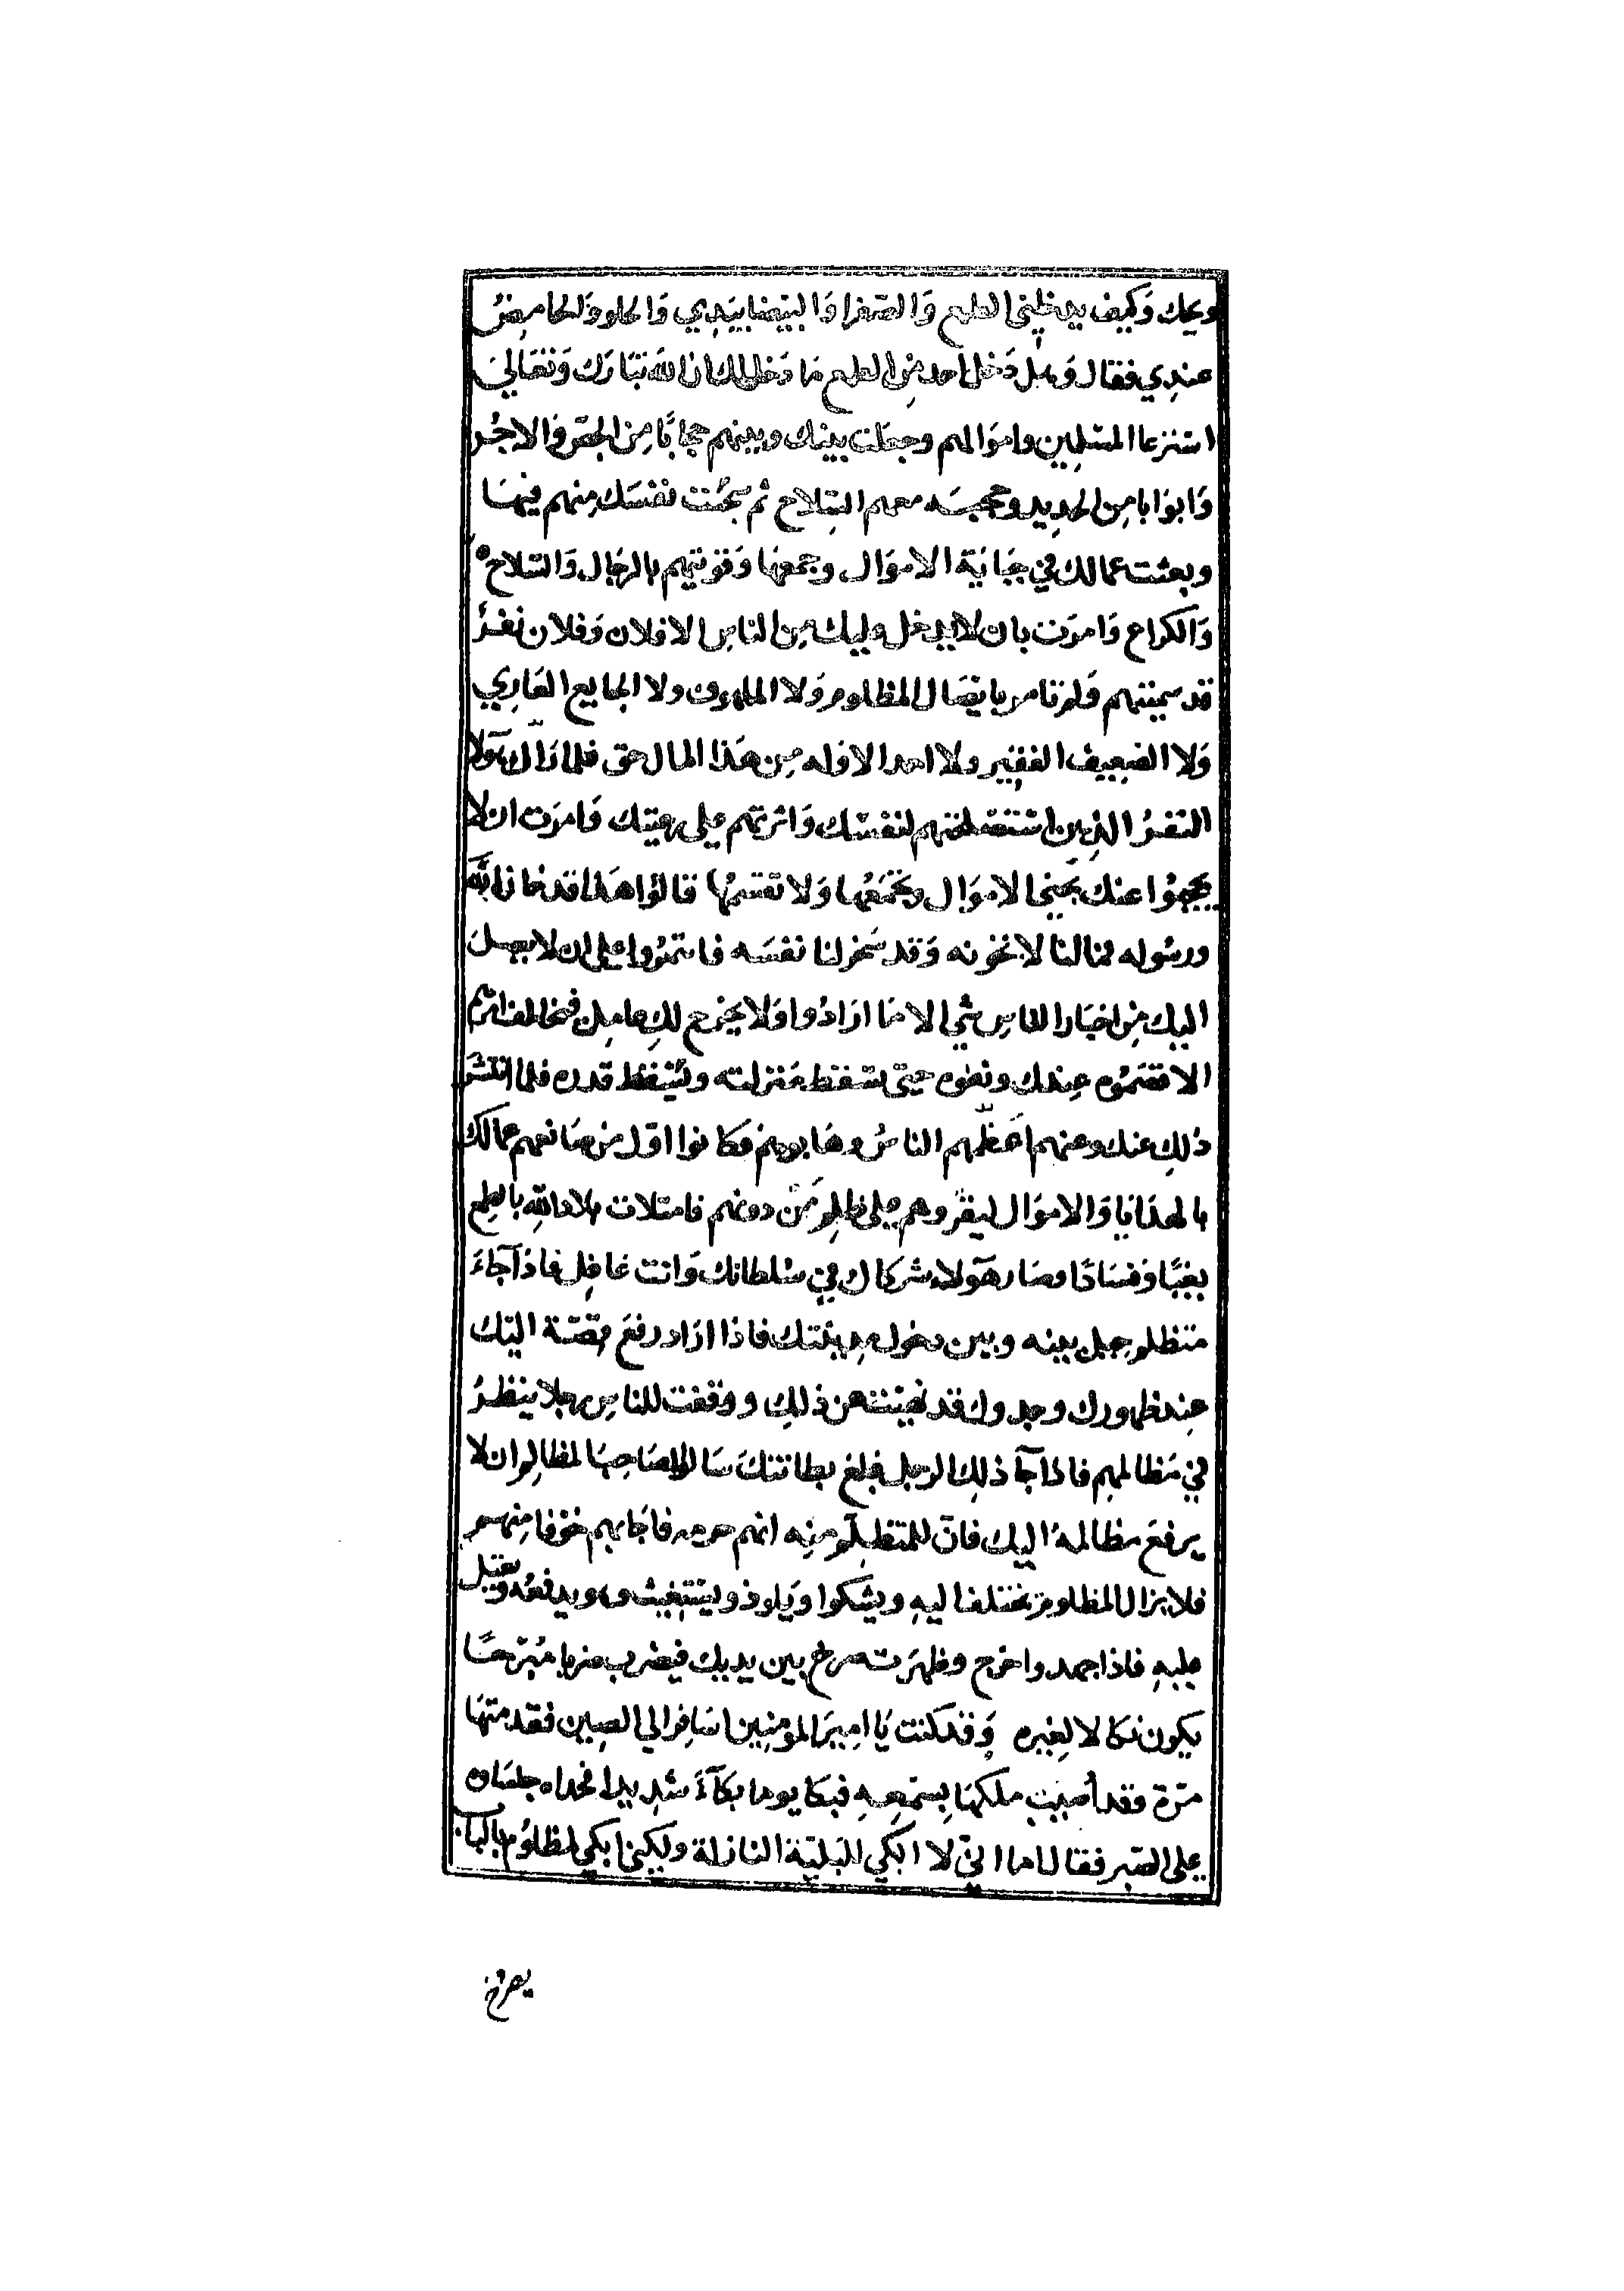 ويحك وَكيف يدخلني الطمع وَالصفرا وَالبيضا بيَدِي وَالحلو وَالحامِضُ
عندِي فقال وَهَل دَخل احد مِن الطمع مَا دَخلك ان الله تبَارَك وَتعَالىَ
استرعاك المسْلِمين وامْوَالهم وجعَلت بينك وبينهم حجابًا مِن الجصّ وَالاجُر
وَابوَابا مِن الحدِيد وحجبَه معهم السِّلاح ثم سجَنت نفْسَك مِنهم فِيهَا
وبعثت عمالك في جبَايَة الامْوَال وجمعهَا وَقوّيتهم بالرجَال وَالسّلاح
وَالكراع وَامَرت بان لا يدخل عليك مِن الناسِ الا فلان وَفلان نفرٌ
قد سميتهم وَلم تامر بايصَال المظلوم وَلا الملهوف ولا الجايع العَارِي
وَلا الضعِيف الفقِير ولا احد الا وَله مِن هَذا المال حق فلما رَاك هَولا
النفرُ الذِين استخلصتهم لنفسْك وَاثرتهم علي رعيتك وَامرَت ان لا
يحجبُوا عنك تجبي الامْوَال وتجمَعُها وَلا تقسِمُها قالوُا هَذا قد خان الله
ورسُوله فمالنا لا نخونه وَقد سَخر لنا نفسَه فاتمرُوا علي ان لا يصل
اليك مِن اخبَار الناسِ شي الا مَا ارَادُوا وَلا يخرج لك عامِل فيخالف امرهم
الا قصَموُه عِندك ونفوه حتي تسقط مَنزلته ويَصْغر قدره فلما انتشَر
ذلِك عنك وعنهم اعَظّمهم الناسُ وهَابوهم فكانوا اوّل من صَانعهم عمالك
بالهدَايَا وَالامْوَال ليقوُوا بهم علي ظلم مَن دونهم فامتلات بلاد اللهِ بالطمع
بغيًا وَفسَادًا وصَار هَولاء شركاك في سُلطانك وَانت غافِل فاذا جاءَ
متظلم حِيل بينه وبين دخول مدِينَتك فاذا ارَاد رفعَ قصّة اليْك
عِند ظهورك وجدوك قد نهَيْت عن ذلِك ووقفت للناسِ رجلا ينظرُ
في مَظالمهم فاذا جآ ذلِك الرجل فبلغ بطانتَك سَالوا صَاحِبَ المظالِم ان لا
يرفعَ مظالمهُ اليك فانّ للمتظلّم مِنه انهم حرمه فاجَابهم خوْفا مِنهم
فلا يزال المظلوم يختلف اليهِ ويشكوا وَيلوذ ويسْتغِيث وهو يدفعُه ويعتل
عليهِ فاذا جهد واخرج وظهَرت صرخ بين يديك فيضرب ضربا مُبَرّحًا
يكون نكالا لِغيره وَقد كنت يَا امِيرَ المؤمِنِين اسَافِر الي الصِين فقدِمتهَا
مَرّة وقد أُصيب ملكهَا بِسَمعِهِ فبَكا يوما بكآءً شدِيدا فحداه جلسَاه
علي الصّبر فقال اما اني لا ابكي للبَليّة النازلة ولكِني ابكي لمظلوُم بالباب
يصرخ